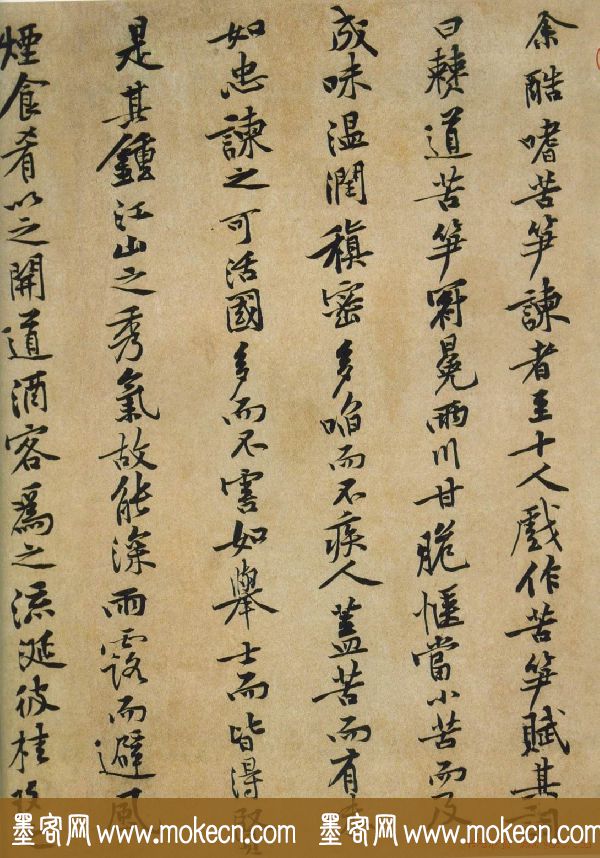 余酷嗜苦笋諫者至十人戲作苦笋賦其詞
曰僰道苦笋冠冕兩川甘脆愜當小苦而反
成味温潤稹密多啗而不疾人蓋苦而有
如忠諫之可活國多而不害如舉士而皆得賢
是其鍾江山之秀氣故能深雨露而避風
煙食肴以之開道酒客爲之流涎彼桂
墨客网 www.mokecn.com 墨客网 www.mokecn.com